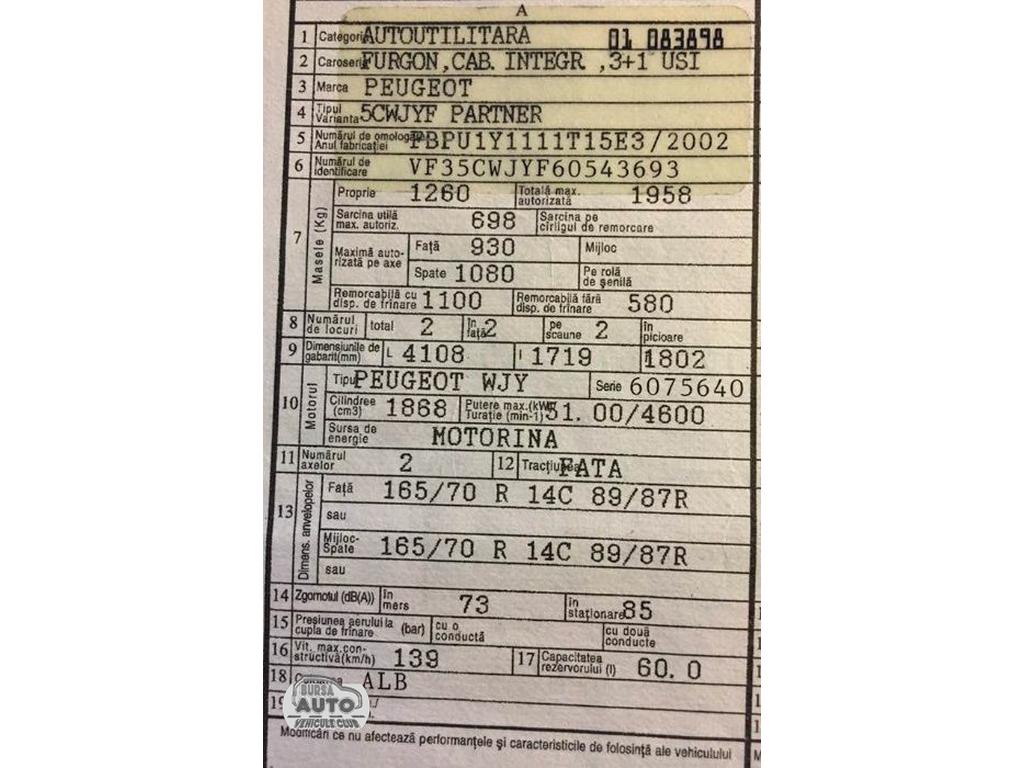 A
1 Categoria AUTOUTILITARA 01 083898
2 Caroseria FURGON,CAB. INTEGR ,3+1 USI
3 Marca PEUGEOT
4 Tipul Varianta 5CWJYF PARTNER
5 Numărul de omologare Anul fabricației PBPU1Y1111T15E3/2002
6 Numărul de identificare VF35CWJYF60543693
7 Masele (Kg)
Proprie 1260 Totală max. autorizată 1958
Sarcina utilă max. autoriz. 698 Sarcina pe cîrligul de remorcare
Maximă autorizată pe axe Față 930 Mijloc
Spate 1080 Pe rolă de șenilă
Remorcabilă cu disp. de frînare 1100 Remorcabilă fără disp. de frînare 580
8 Numărul de locuri total 2 în față 2 pe scaune 2 în picioare
9 Dimensiunile de gabarit(mm) L 4108 l 1719 1802
10 Motorul
Tipul PEUGEOT WJY Serie 6075640
Cilindree (cm3) 1868 Putere max.(kW) Turație (min-1) 51.00/4600
Sursa de energie MOTORINA
11 Numărul axelor 2 12 Tracțiunea FATA
13 Dimens. anvelopelor
Față 165/70 R 14C 89/87R
sau
Mijloc-Spate 165/70 R 14C 89/87R
sau
14 Zgomotul (dB(A)) în mers 73 în staționare 85
15 Presiunea aerului la cupla de frînare (bar) cu o conductă cu două conducte
16 Vit. max.constructivă(km/h) 139 17 Capacitatea rezervorului (l) 60.0
18 ALB
19
BURSA AUTO VEHICULE CLUB
Modificări ce nu afectează performanțele și caracteristicile de folosință ale vehiculului